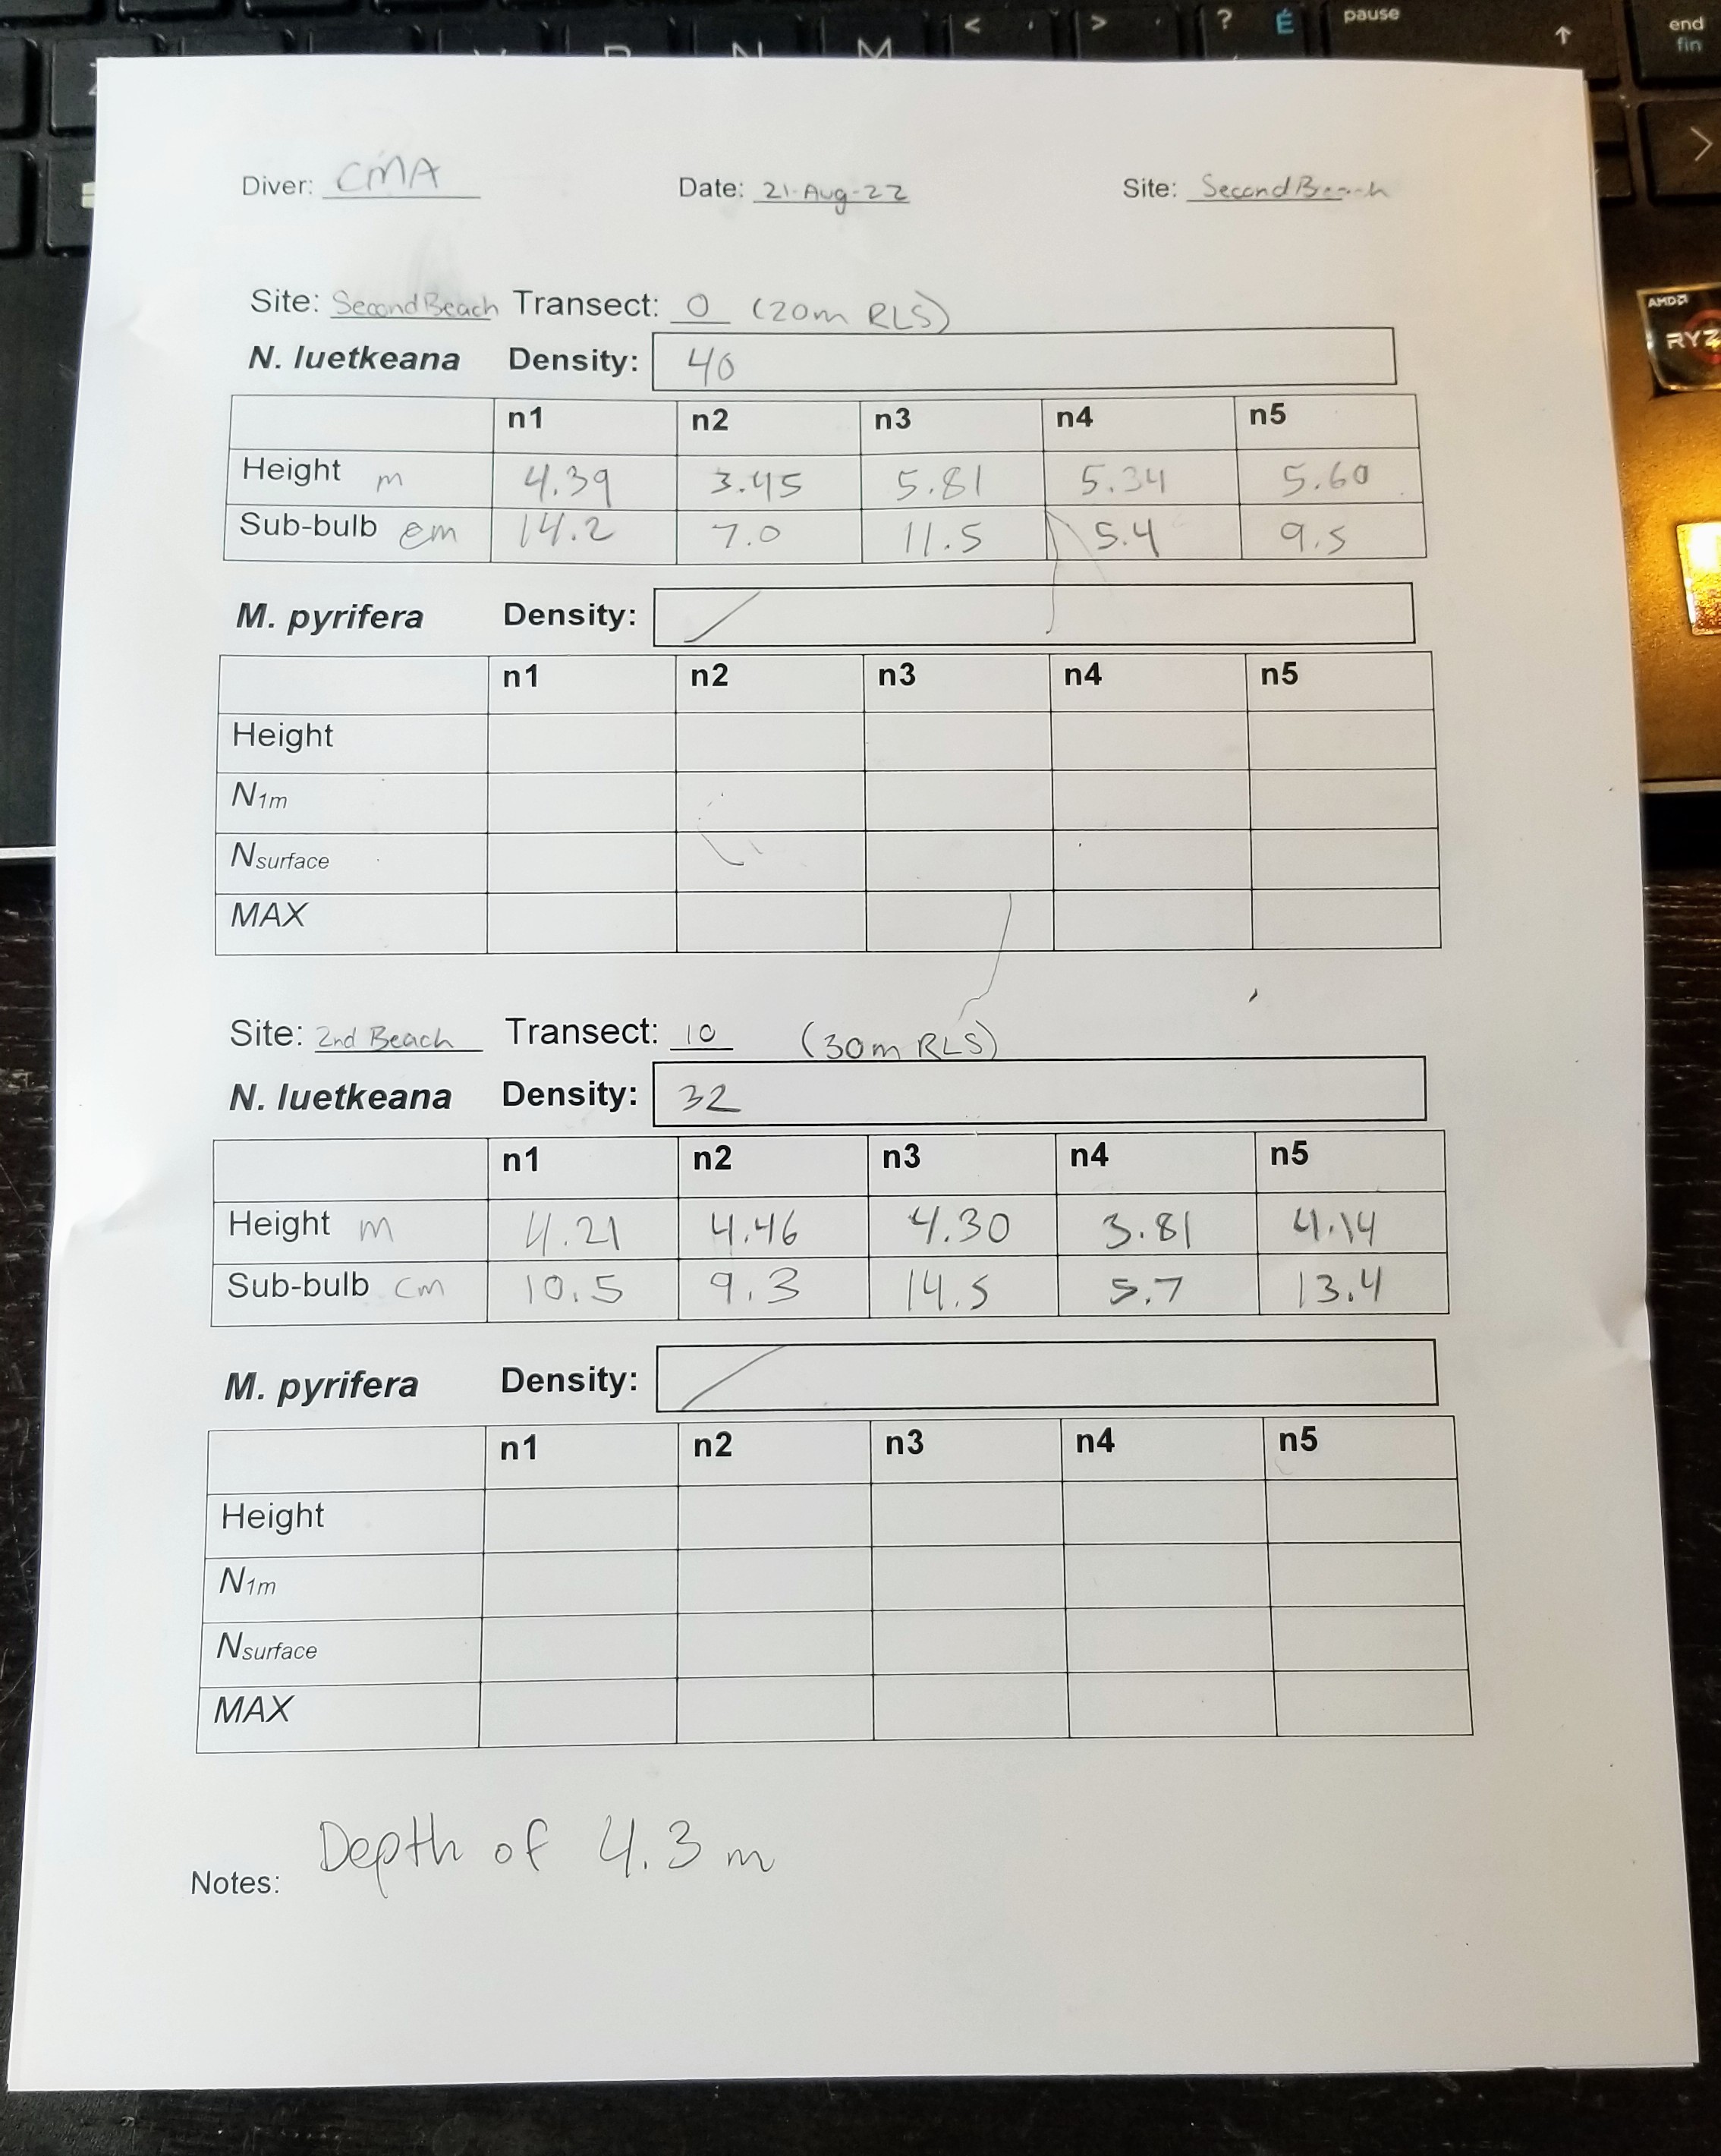 < , > . ? É pause ↑ end
fin
N M
Diver: CMA Date: 21-Aug-22 Site: Second Beach
Site: Second Beach Transect: 0 (20m RLS)
N. luetkeana Density: 40
n1 n2 n3 n4 n5
Height m 4.39 3.45 5.81 5.34 5.60
Sub-bulb cm 14.2 7.0 11.5 5.4 9.5
M. pyrifera Density: /
n1 n2 n3 n4 n5
Height
N1m
Nsurface
MAX
Site: 2nd Beach Transect: 10 (30m RLS)
N. luetkeana Density: 32
n1 n2 n3 n4 n5
Height m 4.21 4.46 4.30 3.81 4.14
Sub-bulb cm 10.5 9.3 14.5 5.7 13.4
M. pyrifera Density: /
n1 n2 n3 n4 n5
Height
N1m
Nsurface
MAX
Notes: Depth of 4.3 m
AMD
RYZ